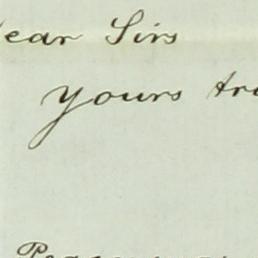 ear Sirs
yours tr